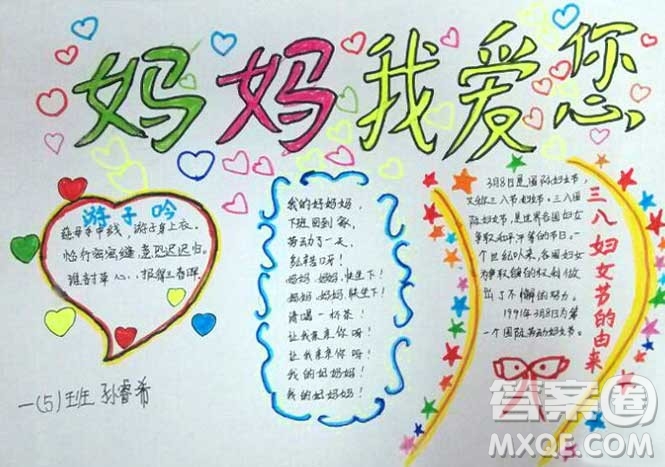 妈妈我爱您
游子吟
慈母手中线，游子身上衣。
临行密密缝，意恐迟迟归。
谁言寸草心，报得三春晖。
一(5)班 孙睿希
我的好妈妈，
下班回到家，
劳动了一天，
多么辛苦呀！
妈妈，妈妈，快坐下！
妈妈，妈妈，快坐下！
请喝一杯茶！
让我来亲你呀！
让我来亲你呀！
我的好妈妈！
我的好妈妈！
三八妇女节的由来
3月8日是国际妇女节，
又称三八节
际妇女节，是世界各国妇女
争取和平
一个世纪以来，各国妇女
为争取
出了不懈的努力。
1991年3月8日为第
一个国际劳动妇女节。
答案圈
MXQE.COM